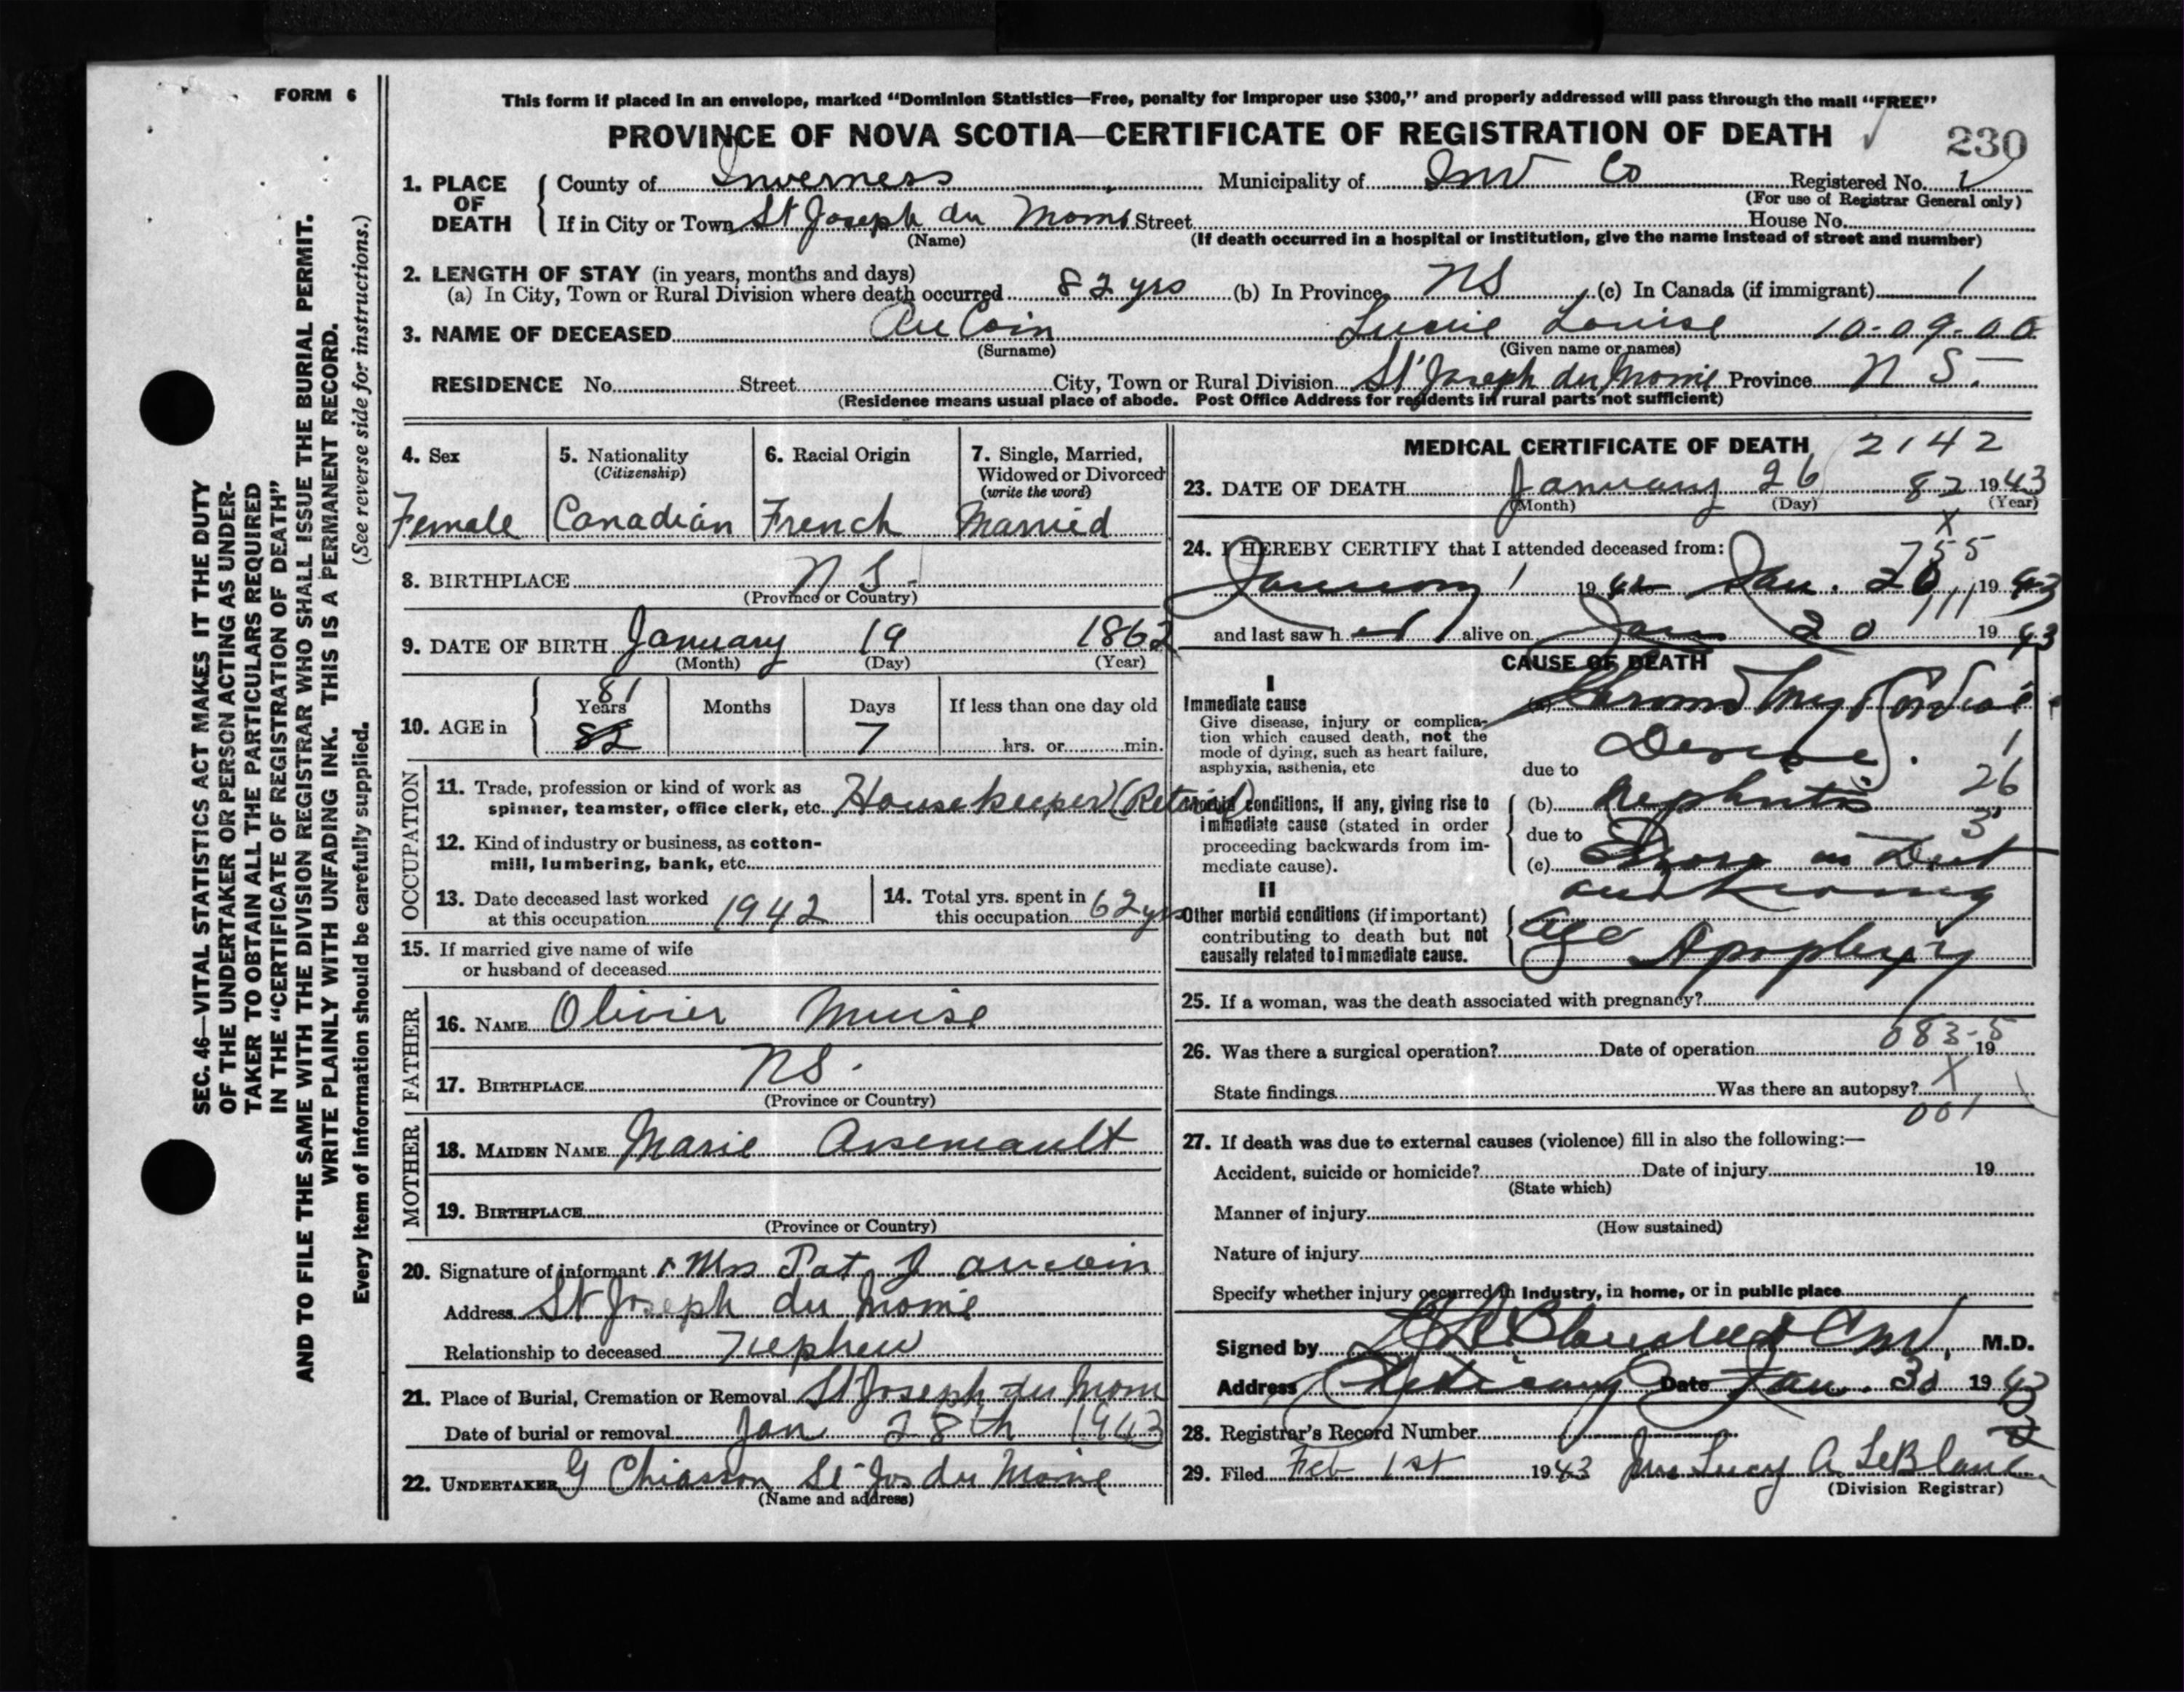 FORM 6
This form if placed in an envelope, marked "Dominion Statistics—Free, penalty for improper use $300," and properly addressed will pass through the mail "FREE"
PROVINCE OF NOVA SCOTIA—CERTIFICATE OF REGISTRATION OF DEATH
230
1. PLACE OF DEATH
County of Inverness Municipality of Inv Co Registered No.
(For use of Registrar General only)
If in City or Town St Joseph du Moine Street House No.
(Name) (If death occurred in a hospital or institution, give the name instead of street and number)
2. LENGTH OF STAY (in years, months and days)
(a) In City, Town or Rural Division where death occurred 82 yrs (b) In Province NS (c) In Canada (if immigrant)
3. NAME OF DECEASED AuCoin Lucie Louise 10-09-00
(Surname) (Given name or names)
RESIDENCE No. Street City, Town or Rural Division St Joseph du Moine Province N S.
(Residence means usual place of abode. Post Office Address for residents in rural parts not sufficient)
4. Sex
Female
5. Nationality
(Citizenship)
Canadian
6. Racial Origin
French
7. Single, Married,
Widowed or Divorced
(write the word)
Married
8. BIRTHPLACE N S.
(Province or Country)
9. DATE OF BIRTH January 19 1862
(Month) (Day) (Year)
10. AGE in
81
Years Months Days If less than one day old
82 7 hrs. or min.
OCCUPATION
11. Trade, profession or kind of work as
spinner, teamster, office clerk, etc. Housekeeper (Retired)
12. Kind of industry or business, as cotton-
mill, lumbering, bank, etc.
13. Date deceased last worked
at this occupation 1942
14. Total yrs. spent in
this occupation 62 yrs
15. If married give name of wife
or husband of deceased
FATHER
16. NAME Olivier Muise
17. BIRTHPLACE NS.
(Province or Country)
MOTHER
18. MAIDEN NAME Marie Arseneault
19. BIRTHPLACE
(Province or Country)
20. Signature of informant Mrs Pat J aucoin
Address St Joseph du Moine
Relationship to deceased Nephew
21. Place of Burial, Cremation or Removal St Joseph du Moin
Date of burial or removal Jan 28th 1943
22. UNDERTAKER G Chiasson St Jos du Moine
(Name and address)
MEDICAL CERTIFICATE OF DEATH 2142
23. DATE OF DEATH January 26 82 1943
(Month) (Day) (Year)
24. I HEREBY CERTIFY that I attended deceased from:
755
January 1 1942 Jan. 20 1943
and last saw h alive on Jan 20 1943
CAUSE OF DEATH
I
Immediate cause
Give disease, injury or complica-
tion which caused death, not the
mode of dying, such as heart failure,
asphyxia, asthenia, etc
(a)
due to
Morbid conditions, if any, giving rise to
immediate cause (stated in order
proceeding backwards from im-
mediate cause).
(b) Nephritis 26
due to
(c)
II
Other morbid conditions (if important)
contributing to death but not
causally related to immediate cause.
Age Apoplexy
25. If a woman, was the death associated with pregnancy?
083-5
26. Was there a surgical operation? Date of operation 19
State findings Was there an autopsy? X
001
27. If death was due to external causes (violence) fill in also the following:—
Accident, suicide or homicide? Date of injury 19
(State which)
Manner of injury
(How sustained)
Nature of injury
Specify whether injury occurred in Industry, in home, or in public place
Signed by M.D.
Address Cheticamp Date Jan. 30 1943
28. Registrar's Record Number
29. Filed Feb 1st 1943 Mrs Lucy A LeBlanc
(Division Registrar)
SEC. 46—VITAL STATISTICS ACT MAKES IT THE DUTY
OF THE UNDERTAKER OR PERSON ACTING AS UNDER-
TAKER TO OBTAIN ALL THE PARTICULARS REQUIRED
IN THE "CERTIFICATE OF REGISTRATION OF DEATH"
AND TO FILE THE SAME WITH THE DIVISION REGISTRAR WHO SHALL ISSUE THE BURIAL PERMIT.
WRITE PLAINLY WITH UNFADING INK. THIS IS A PERMANENT RECORD.
Every item of information should be carefully supplied. (See reverse side for instructions.)